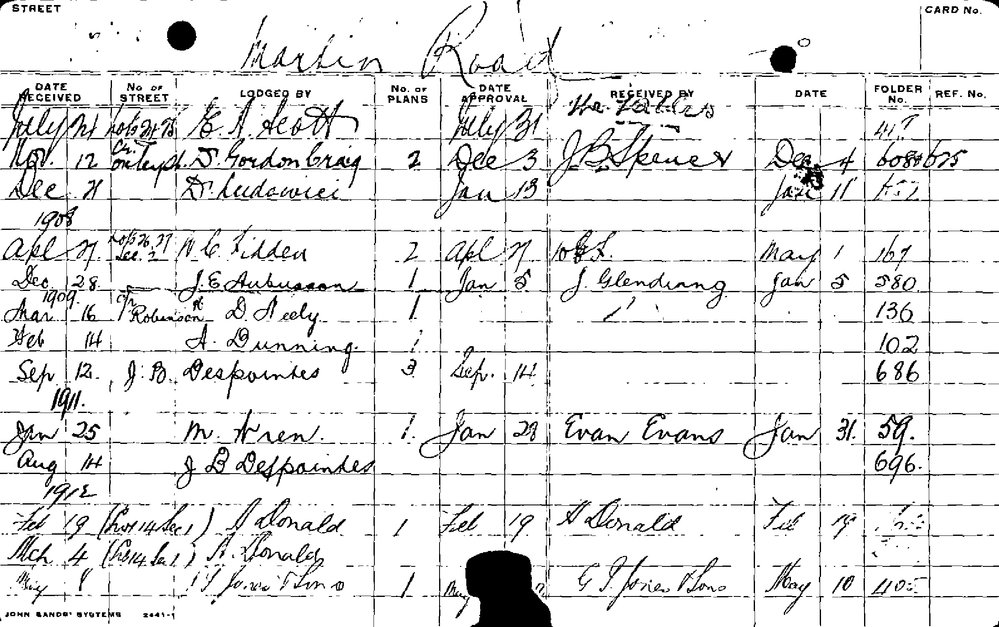 STREET CARD No.
Martin Road
DATE RECEIVED No OF STREET LODGED BY No. OF PLANS DATE APPROVAL RECEIVED BY DATE FOLDER No. REF. No.
July 21 E. A. Scott July 31 417
Nov. 12 D. Gordon Craig 2 Dec 3 J B Spencer Dec 4 608 & 625
Dec 21 Dr. Ludowici Jan 13 Jan
1908
Apl 27 lots 26, 27 Sec. 2 W. C. Fidden 2 Apl 27 May 1 167
Dec. 28. J. E. Aubusson 1 Jan 5 J. Glendinng Jan 5 580
1909
Mar 16 Cr Robinson st D. Neely 1 " 136
Feb 14 A. Dunning. 1 102
Sep 12. J. B. Despointes 3 Sep. 14. 686
1911.
Jan 25 M. Wren. 1. Jan 28 Evan Evans Jan 31. 59.
Aug 14 J B Despointes 696.
1912
Feb 19 (Lot 14 Sec 1) A Donald 1 Feb 19 A Donald Feb 19
Mch 4 (Lot 14 Sec 1) A. Donald
May 8 Jones & Sons 1 May G. J. Jones & Sons May 10 405
JOHN SANDS' SYSTEMS 2441-1